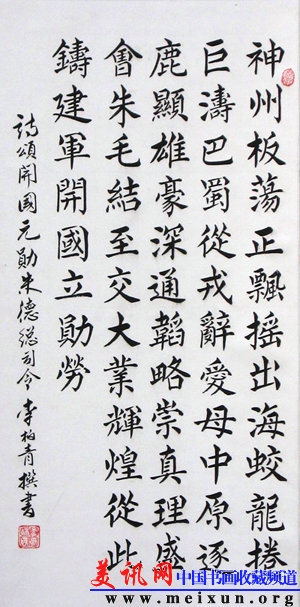 神州板蕩正飄摇出海蛟龍捲
巨濤巴蜀從戎辭愛母中原逐
鹿顯雄豪深通韜略崇真理盛
會朱毛結至交大業輝煌從此
鑄建軍開國立勛勞
詩頌開國元勛朱德總司令李柏青撰書
美讯网 中国书画收藏频道
www.meixun.org